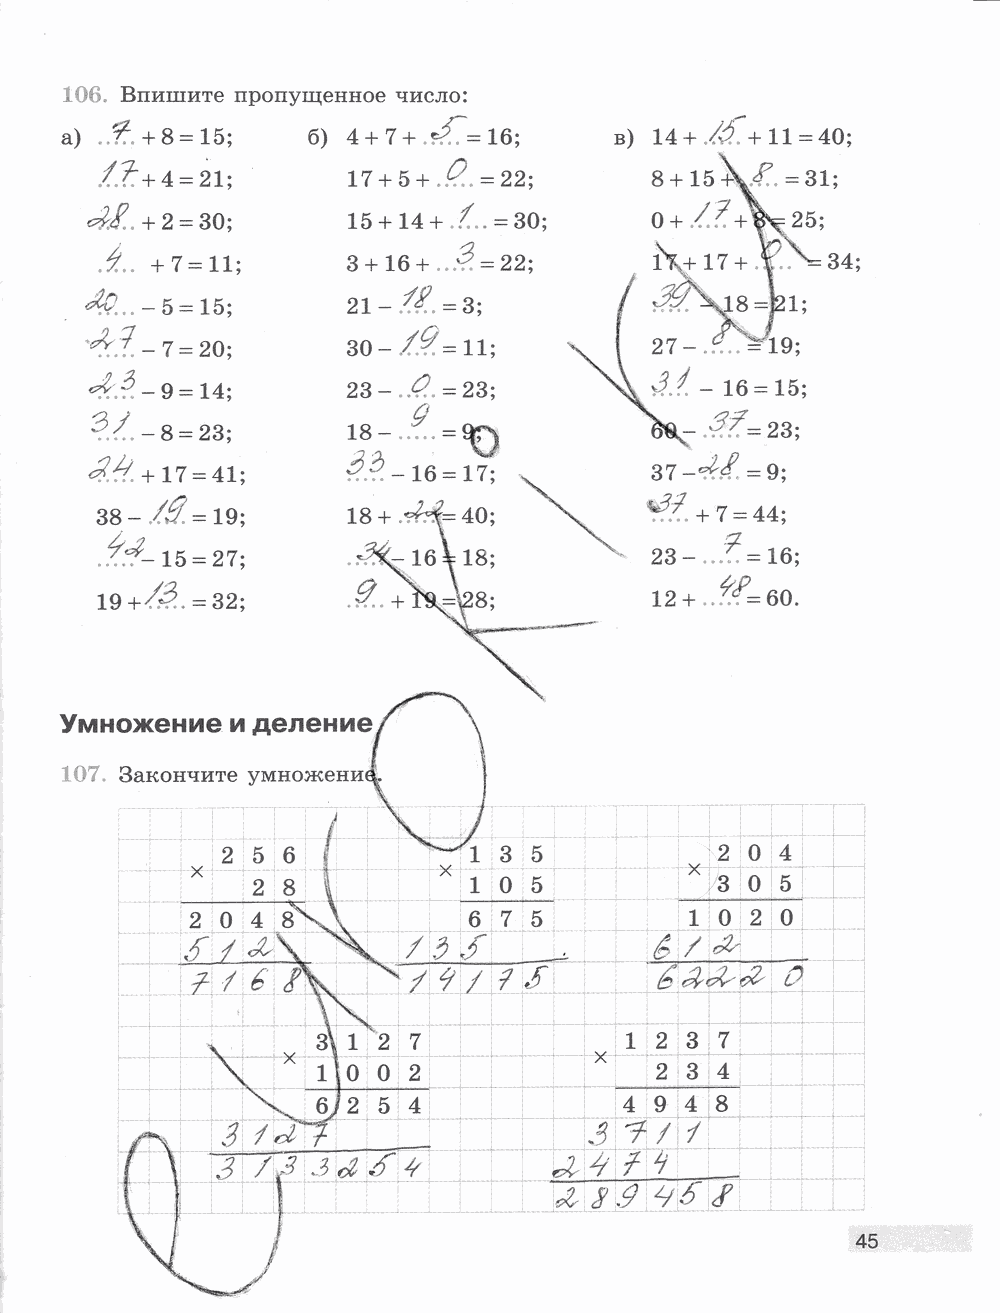 106. Впишите пропущенное число:
а) 7 + 8 = 15; б) 4 + 7 + 5 = 16; в) 14 + 15 + 11 = 40;
17 + 4 = 21; 17 + 5 + 0 = 22; 8 + 15 + 8 = 31;
28 + 2 = 30; 15 + 14 + 1 = 30; 0 + 17 + 8 = 25;
4 + 7 = 11; 3 + 16 + 3 = 22; 17 + 17 + 0 = 34;
20 – 5 = 15; 21 – 18 = 3; 39 – 18 = 21;
27 – 7 = 20; 30 – 19 = 11; 27 – 8 = 19;
23 – 9 = 14; 23 – 0 = 23; 31 – 16 = 15;
31 – 8 = 23; 18 – 9 = 9; 60 – 37 = 23;
24 + 17 = 41; 33 – 16 = 17; 37 – 28 = 9;
38 – 19 = 19; 18 + 22 = 40; 37 + 7 = 44;
42 – 15 = 27; 34 – 16 = 18; 23 – 7 = 16;
19 + 13 = 32; 9 + 19 = 28; 12 + 48 = 60.
Умножение и деление
107. Закончите умножение.
× 256 × 135 × 204
28 105 305
2048 675 1020
512 135 612
7168 14175 62220
× 3127 × 1237
1002 234
6254 4948
3127 3711
3133254 2474
289458
45